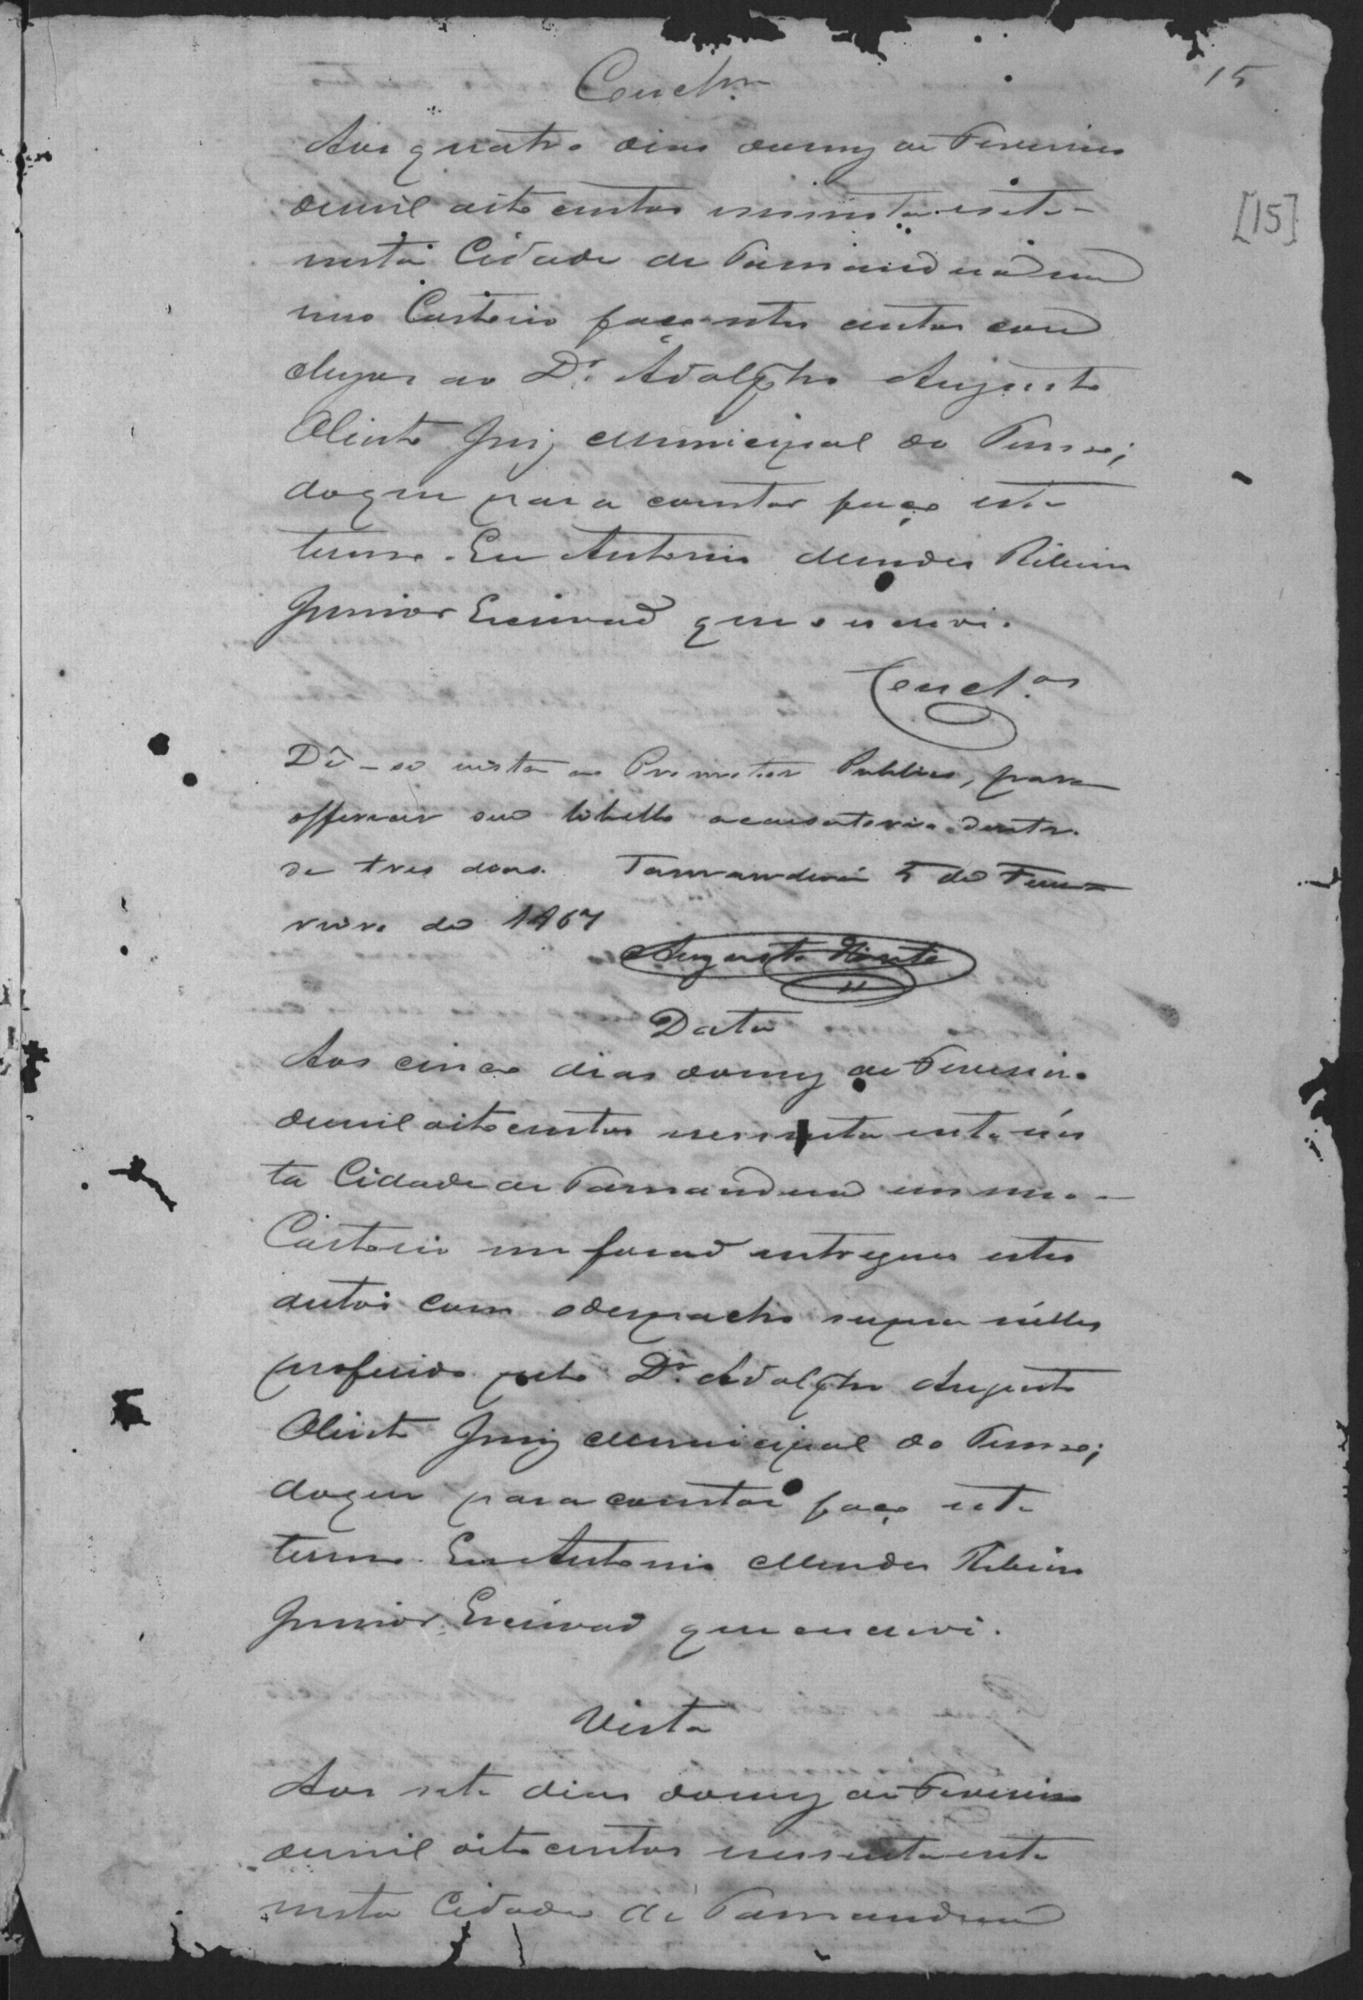 15
[15]
Concl.m
Aos quatro dias domez de Fevereiro
demil oito centos sessenta esete
nesta Cidade de Tamanduá em
meo Cartorio faço estes autos con
clusos ao Dr. Adolpho Augusto
Olinto Juiz Municipal do Termo;
doque para constar faço este
termo. Eu Antonio Mendes Ribeiro
Junior Escrivão que o escrevi.
Concl.os
Dê-se vista ao Promotor Publico, para
offerecer seo libello accusatorio dentro
de tres dias. Tamanduá 5 de Feve-
reiro de 1867
Augusto Olinto
Data
Aos cinco dias domez de Fevereiro
demil oitocentos sessenta esete nes
ta Cidade de Tamanduá em meo
Cartorio me forão entregues estes
autos com odespacho supra nelles
proferido pelo Dr. Adolpho Augusto
Olinto Juiz Municipal do Termo;
doque para constar faço este
termo. Eu Antonio Mendes Ribeiro
Junior Escrivão que escrevi.
Vista
Aos sete dias domez de Fevereiro
demil oito centos sessenta esete
nesta Cidade de Tamanduá